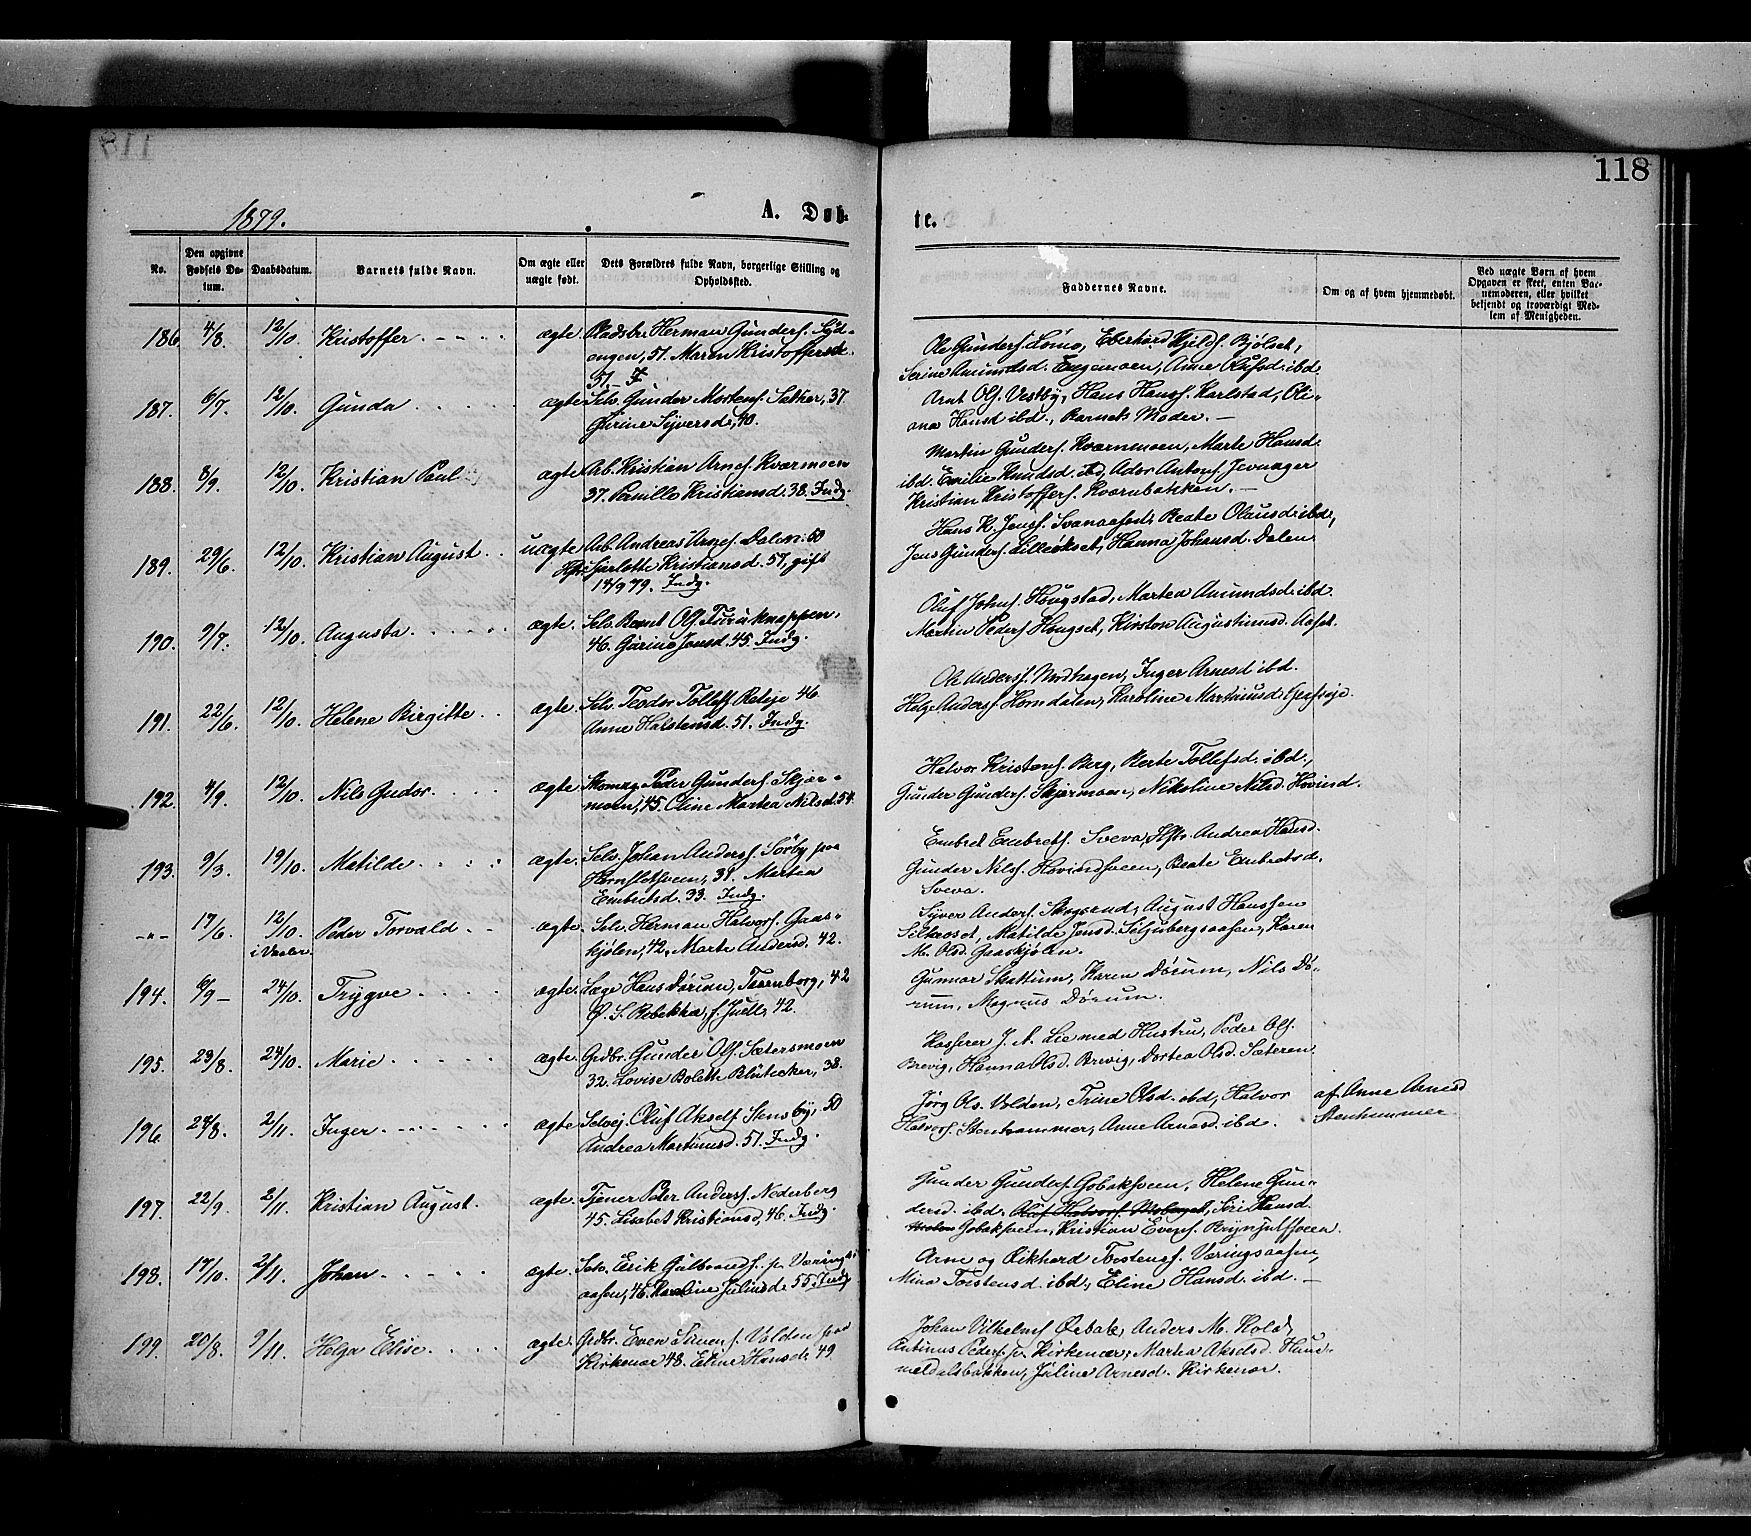 118
1879.
A. Døb-
te.
No.
Den opgivne
Fødsels Da-
tum.
Daabsdatum.
Barnets fulde Navn.
Om ægte eller
uægte født.
Dets Forældres fulde Navn, borgerlige Stilling og
Opholdssted.
Faddernes Navne.
Om og af hvem hjemmedøbt.
Ved uægte Børn af hvem
Opgaven er skeet, enten Bar-
nemoderen, eller hvilket
bekjendt og troværdigt Med-
lem af Menigheden.
186 4/8. 12/10. Kristoffer ægte Pladsbr. Herman Gunders.
51. Maren Kristoffersd.
51.
Ole Gunders. Lømo, Eberhard Kjelds. Bjølset,
Serine Amundsd. Engemoen, Anne Olufsd. ibd.
187. 6/7. 12/10. Gunda ægte Selv. Gunder Mortens. Sæther, 37.
Gurine Syversd., 40.
Arnt Ols. Vestby, Hans Hanss. Karlstad, Oli-
ana Hansd ibd., Barnets Moder. —
188. 8/9. 12/10. Kristian Paul ægte Arb. Kristian Arnes. Kværmoen
37. Pernille Kristiansd. 38. Indg.
Martin Gunders. Kværnmoen, Marte Hansd.
ibd. Emilie Knudsd. ibd, Ador Antons. Jevnager
Kristian Kristoffers. Kværnbakken. —
189. 29/6. 12/10. Kristian August uægte Arb. Andreas Arnes. Dalen. 50
Sarlotte Kristiansd. 57, gift
14/9 79. Indg.
Hans K. Jenss. Svenaasen, Beate Olausd. ibd.,
Jens Gunders. Lillerøkset, Hanna Johansd. Dalen
190. 9/7. 12/10. Augusta ægte. Selv. Bernt Ols. Tururknappen,
46. Gurine Jensd. 45. Indg.
Oluf Johns. Hougstad, Martea Amundsd. ibd.
Martin Peders. Hougset, Kirsten Augustinusd. Aaset.
191. 22/6. 12/10. Helene Birgitte ægte. Selv. Teodor Tollefs. Reteje 46
Anne Halstensd. 51. Indg.
Ole Anderss. Nordhagen, Inger Arnesd ibd.
Helge Anderss. Horndalen, Karoline Martinusd.
192. 4/9. 12/10. Nils Gudor. ægte Peder Gunders. Skjær-
moen, 45. Oline Martea Nilsd. 54.
Halvor Kristens. Berg, Berte Tollefsd. ibd.,
Gunder Gunders. Skjærmoen, Nikoline Nilsd. Hovind.
193. 9/3. 19/10. Matilde ægte. Selv. Johan Anderss. Sörby paa
Hornsletsveen, 31. Martea
Embretsd. 33. Indg.
Embret Embrets. Sveva, Hstr. Andrea Hansd.
Gunder Nilss. Hovindsveen, Beate Embretsd.
Sveva.
-"- 17/6. 12/10. i Vaaler. Peder Torvald ægte. Selv. Herman Halvors. Gaas-
kjølen, 42. Marte Andersd. 42.
Syver Anders. Skogsrud, August Hanssen
Silkeset, Matilde Jensd. Siljubergsaasen, Karen
M. Olsd. Gaaskjølen.
194. 6/9 — 24/10. Trygve ægte. Læge Hans Dørum, Tarnborg, 42
O. S. Rebekka, f. Juell, 42.
Gunnar Skattum, Karen Dørum, Nils Dø-
rum, Magnus Dørum.
195. 23/8. 24/10. Marie ægte. Grdbr. Gunder Ols. Sætersmoen
32. Lovise Bolette Blütecker, 38.
Kasserer J. A. Lie med Hustru, Peder Ols.
Brevig, Hanna Olsd. Brevig, Dortea Olsd. Sæteren.
196. 24/8. 2/11. Inger ægte Selvej. Oluf Aksels. Stensby, 50
Andrea Martinusd. 51. Indg.
Jørg. Ols. Volden, Trine Olsd. ibd, Halvor
Halvors. Stenhammer, Anne Arnesd. ibd.
af Anne Arnesd
Stenhammer
197. 22/9. 2/11. Kristian August. ægte. Tjener Peter Anderss. Nederberg
45. Lisabet Kristiansd, 46. Indg.
Gunder Gunders. Gobaksveen, Helene Gun-
dersd. ibd. Oluf Halvors. Moberget, Siri Hansd.
Gobaksveen, Kristian Evens. Brynjulfsveen.
198. 17/10. 2/11. Johan ægte. Selv. Erik Gulbrands. p. Væring-
aasen, 46. Karoline Juliusd. 55. Indg.
Arne og Rikhard Torstenss. Væringsaasen,
Mina Torstensd. ibd., Eline Hansd. ibd. —
199. 20/8. 9/11. Helga Elise ægte. Grdbr. Even Simens. Volden paa
Kirkenær 48. Eline Hansd. 49.
Johan Vilhelms. Ørbæk, Anders M. Kold,
Antinus Peders. p. Kirkenær, Martea Akselsd. Hum-
meldalsbakken, Juline Arnesd. Kirkenær.